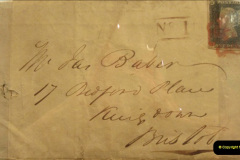 No 1
Mr Jas Baker
17 Bedford Place
Kingsdown
Bristol